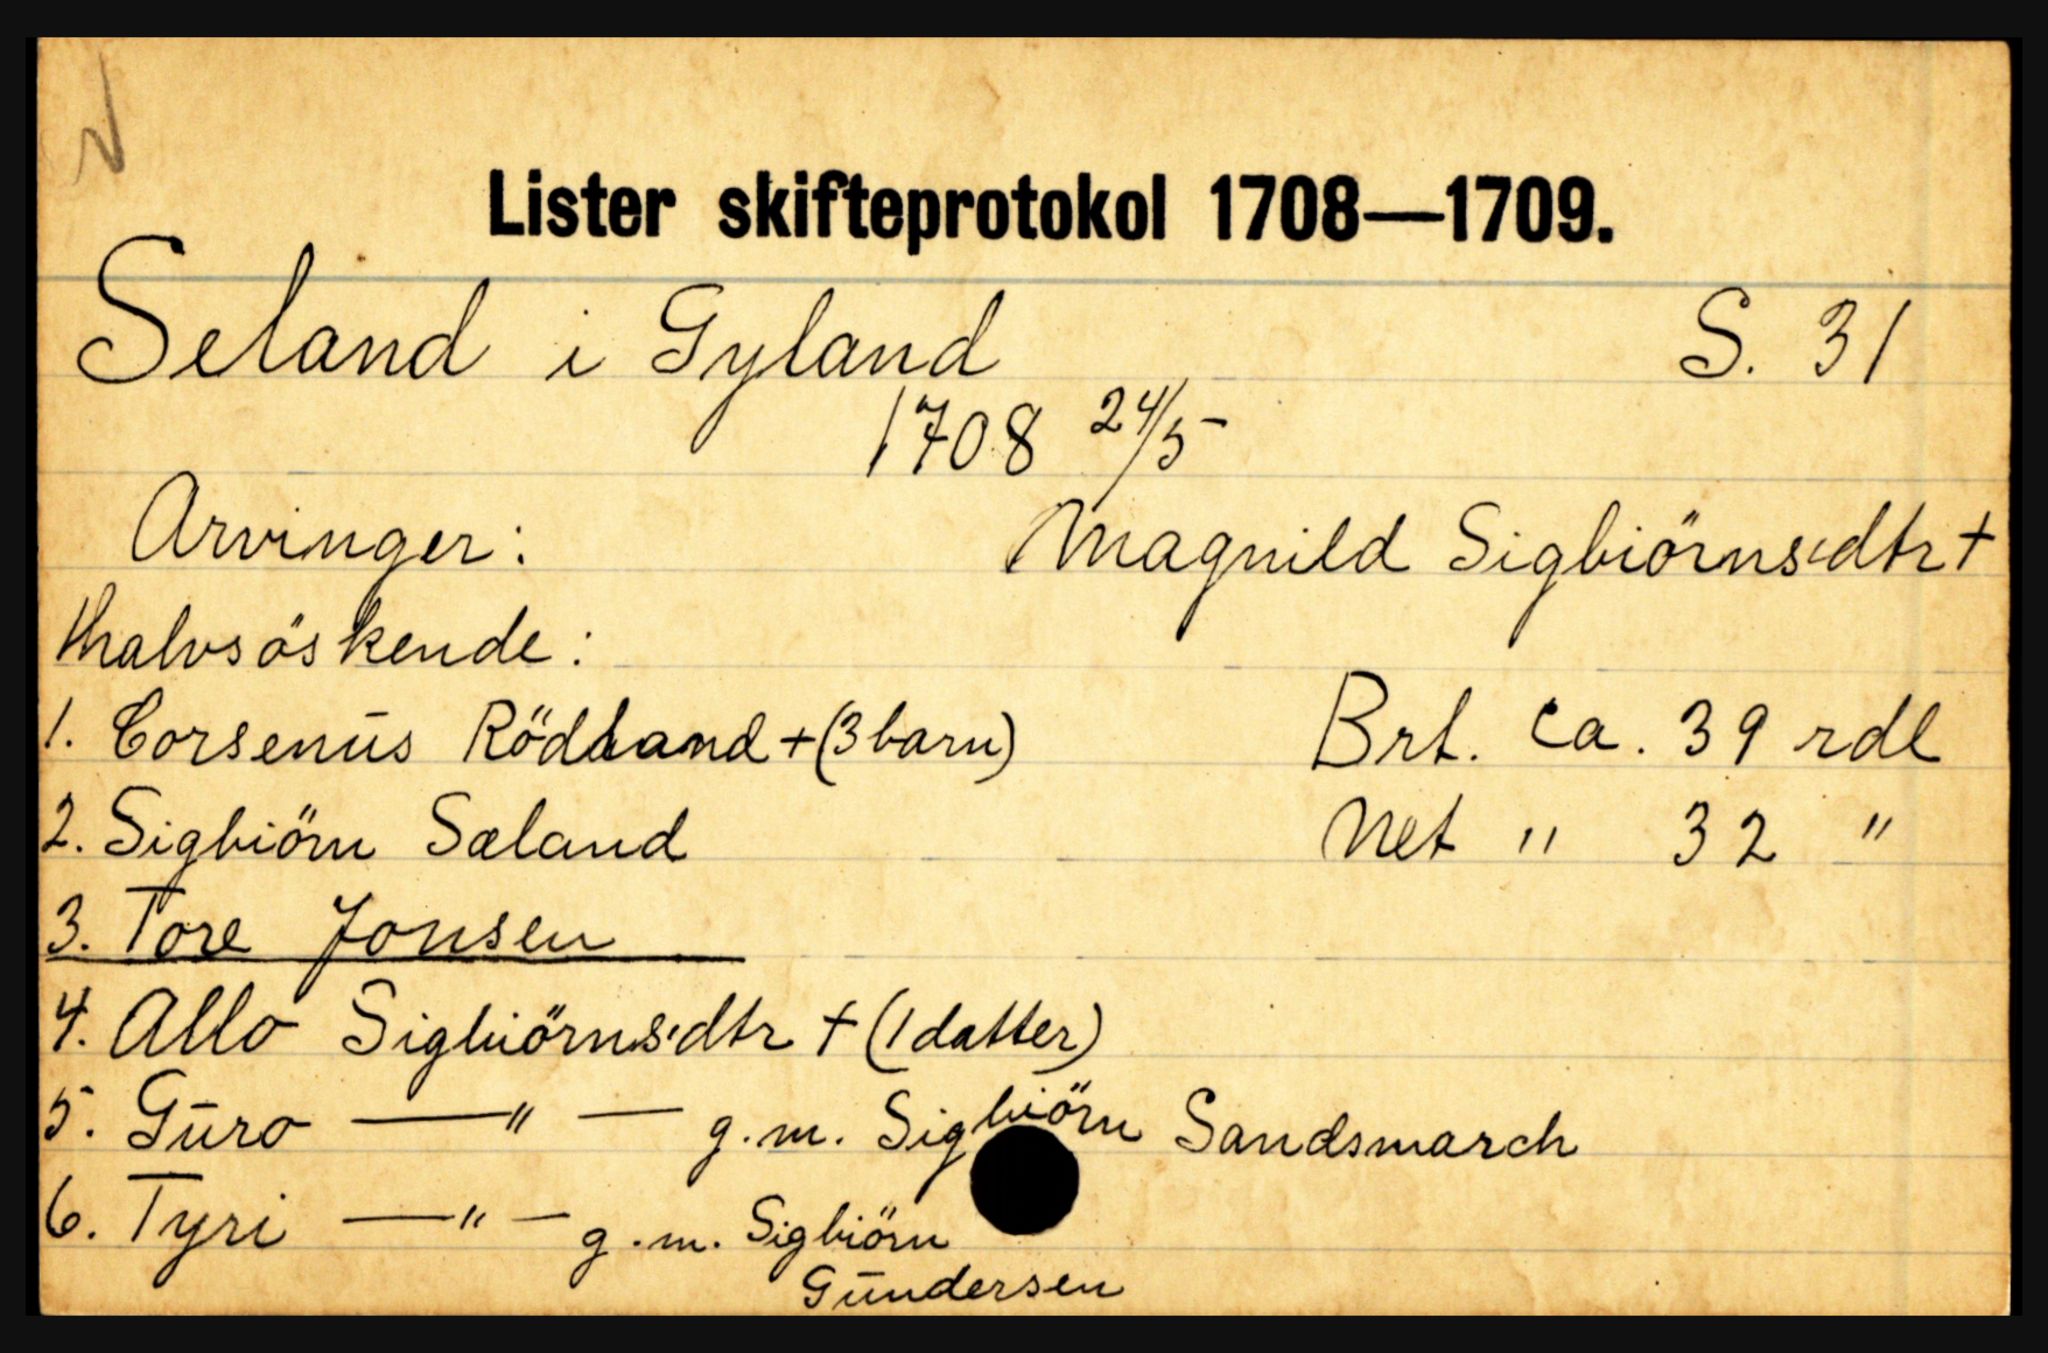 Lister skifteprotokol 1708—1709.
Seland i Gyland S. 31
1708 24/5
Arvinger: Magnild Sigbiörnsdtr +
Halvsöskende:
1. Corsenus Rödland + (3 barn) Brt. ca. 39 rdl
2. Sigbiörn Sæland Net " 32 "
3. Tore Jonsen
4. Allo Sigbiörnsdtr + (1 datter)
5. Guro —"— g.m. Sigbiörn Sandsmarch
6. Tyri —"— g.m. Sigbiörn
Gundersen